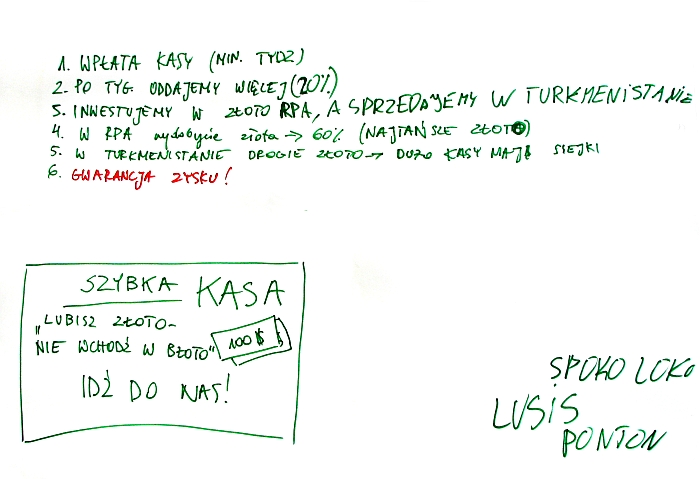 1. WPŁATA KASY (MIN. TYDZ)
2. PO TYG. ODDAJEMY WIĘCEJ (20%)
3. INWESTUJEMY W ZŁOTO RPA, A SPRZEDAJEMY W TURKMENISTANIE
4. W RPA wydobycie złota → 60% (NAJTAŃSZE ZŁOTO)
5. W TURKMENISTANIE DROGIE ZŁOTO → DUŻO KASY MAJĄ SIEJKI
6. GWARANCJA ZYSKU!
SZYBKA KASA
„LUBISZ ZŁOTO-
NIE WCHODŹ W BŁOTO"
100 $
IDŹ DO NAS!
SPOKO LOKO
LUSIS
PONTON